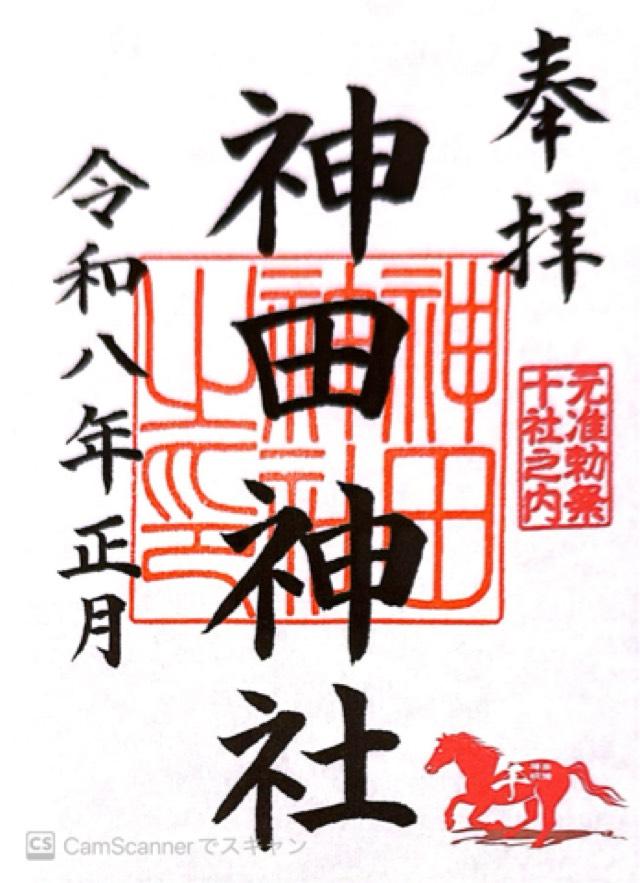 奉拝
元准勅祭
十社之内
神田神社
神田
神社
之印
令和八年正月
午
CS CamScannerでスキャン